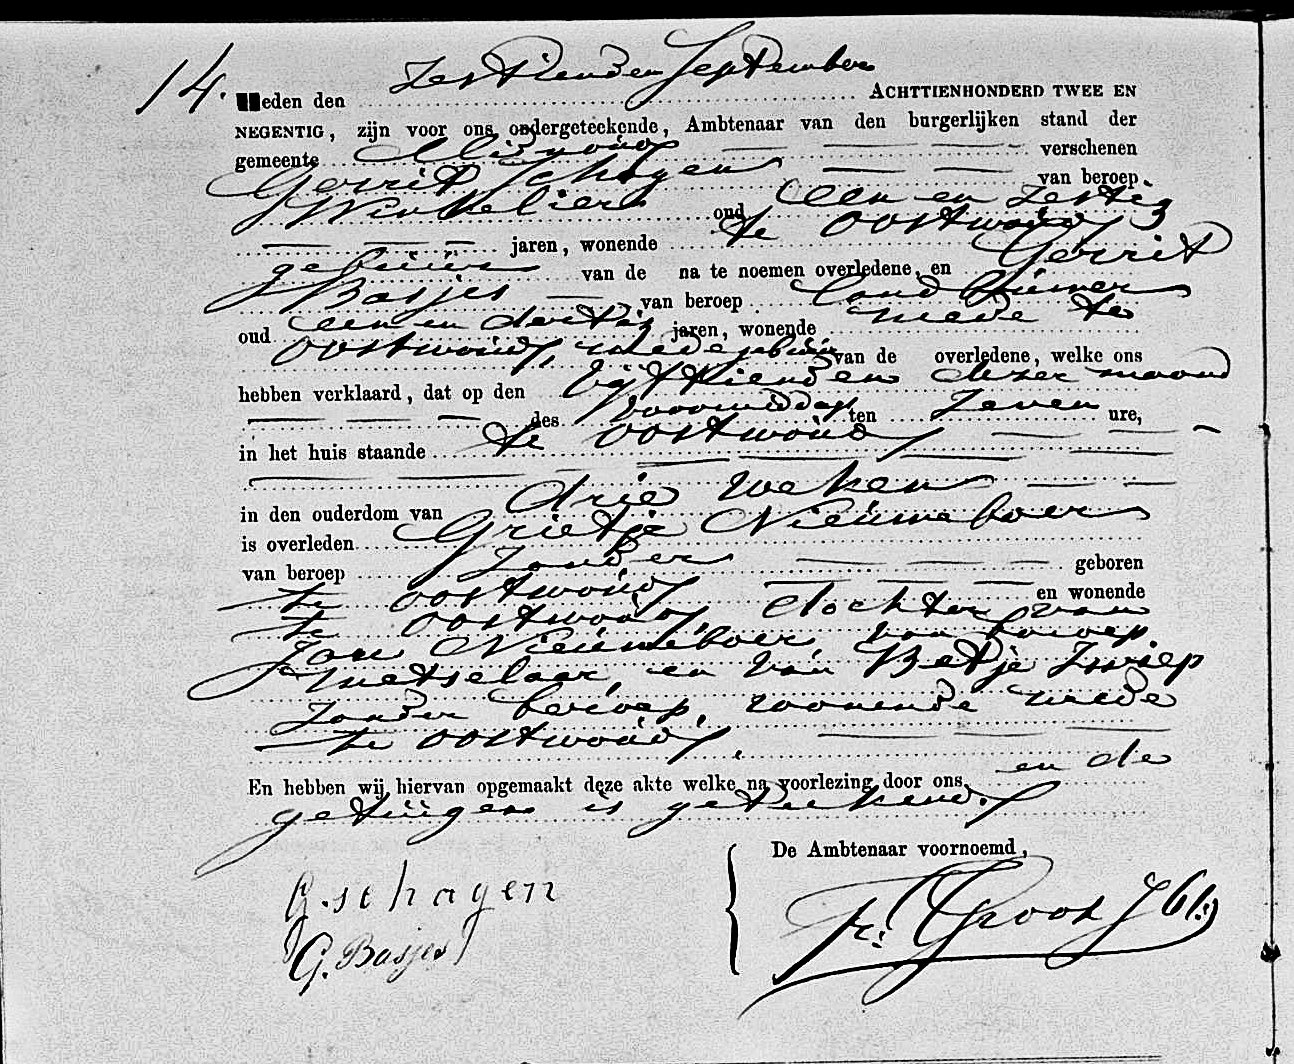 14.
Heden den zestienden September ACHTTIENHONDERD TWEE EN
NEGENTIG, zijn voor ons ondergeteekende, Ambtenaar van den burgerlijken stand der
gemeente Midwoud verschenen
Gerrit Schagen van beroep
Winkelier oud een en zestig
jaren, wonende te Oostwoud,
gebuur van de na te noemen overledene, en Gerrit
Basjes van beroep landbouwer
oud een en dertig jaren, wonende mede te
Oostwoud, medegebuur van de overledene, welke ons
hebben verklaard, dat op den vijftienden dezer maand
des voormiddags ten zeven ure,
in het huis staande te Oostwoud
in den ouderdom van drie weken
is overleden Grietje Nieuweboer
van beroep zonder geboren
te Oostwoud, en wonende
te Oostwoud, dochter van
Jan Nieuweboer, van beroep
metselaar, en van Betje Zwiep
zonder beroep, wonende mede
te Oostwoud,.
En hebben wij hiervan opgemaakt deze akte welke na voorlezing door ons en de
getuigen is geteekend.
De Ambtenaar voornoemd,
G. schagen
G. Basjes
Groot